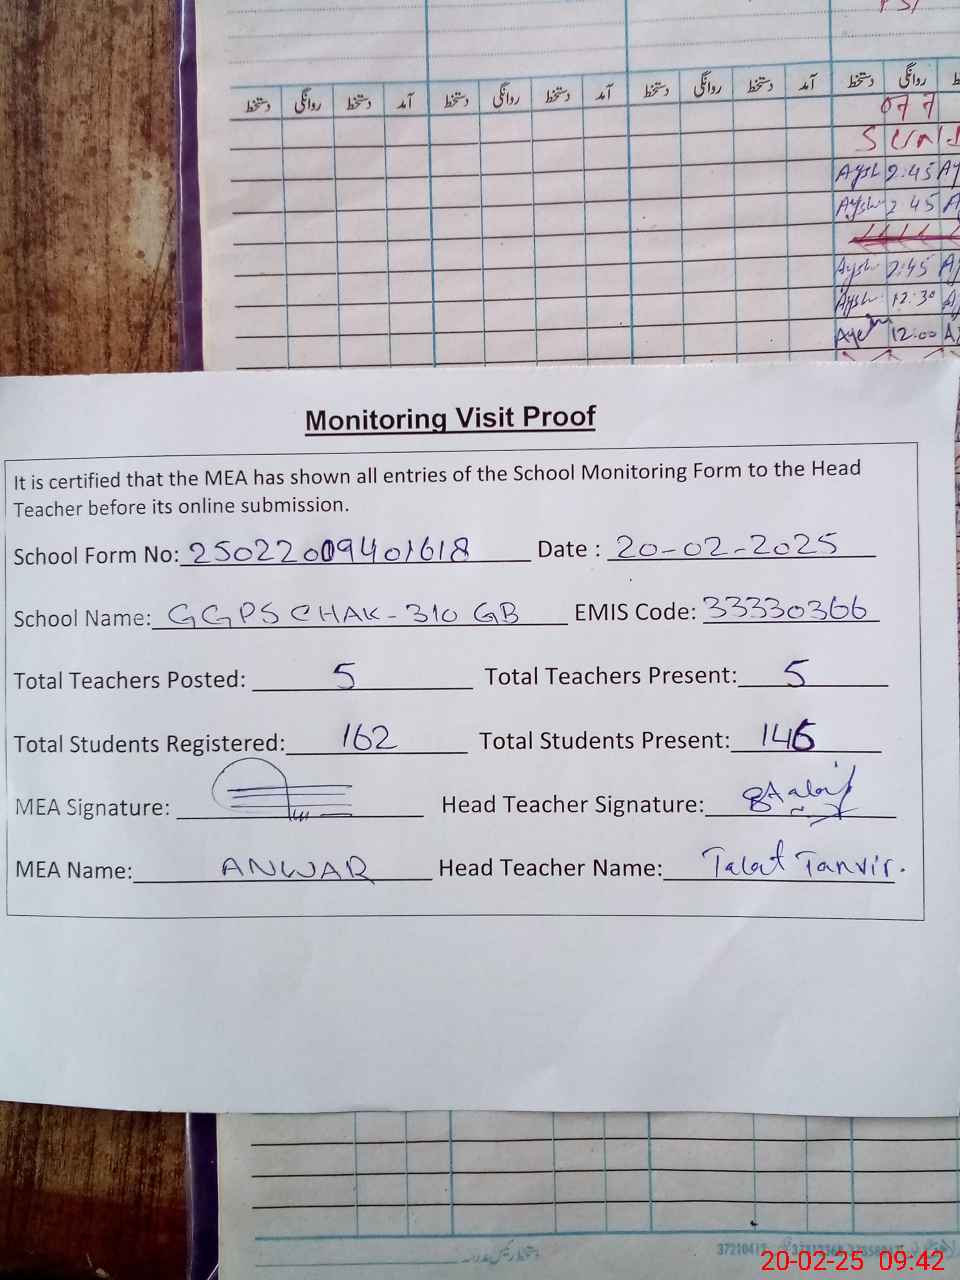 دستخط روانگی دستخط آمد دستخط روانگی دستخط آمد دستخط روانگی دستخط آمد دستخط روانگی
077
SUN
Aysh 2:45 Ay
Aysh 2 45 A
Aysh 2:45 A
Aysh 12:30
12:00 A
Monitoring Visit Proof
It is certified that the MEA has shown all entries of the School Monitoring Form to the Head
Teacher before its online submission.
School Form No: 25022009401618 Date : 20-02-2025
School Name: GGPS CHAK-310 GB EMIS Code: 33330366
Total Teachers Posted: 5 Total Teachers Present: 5
Total Students Registered: 162 Total Students Present: 146
MEA Signature: Head Teacher Signature:
MEA Name: ANWAR Head Teacher Name: Talat Tanvir.
37210413
20-02-25 09:42